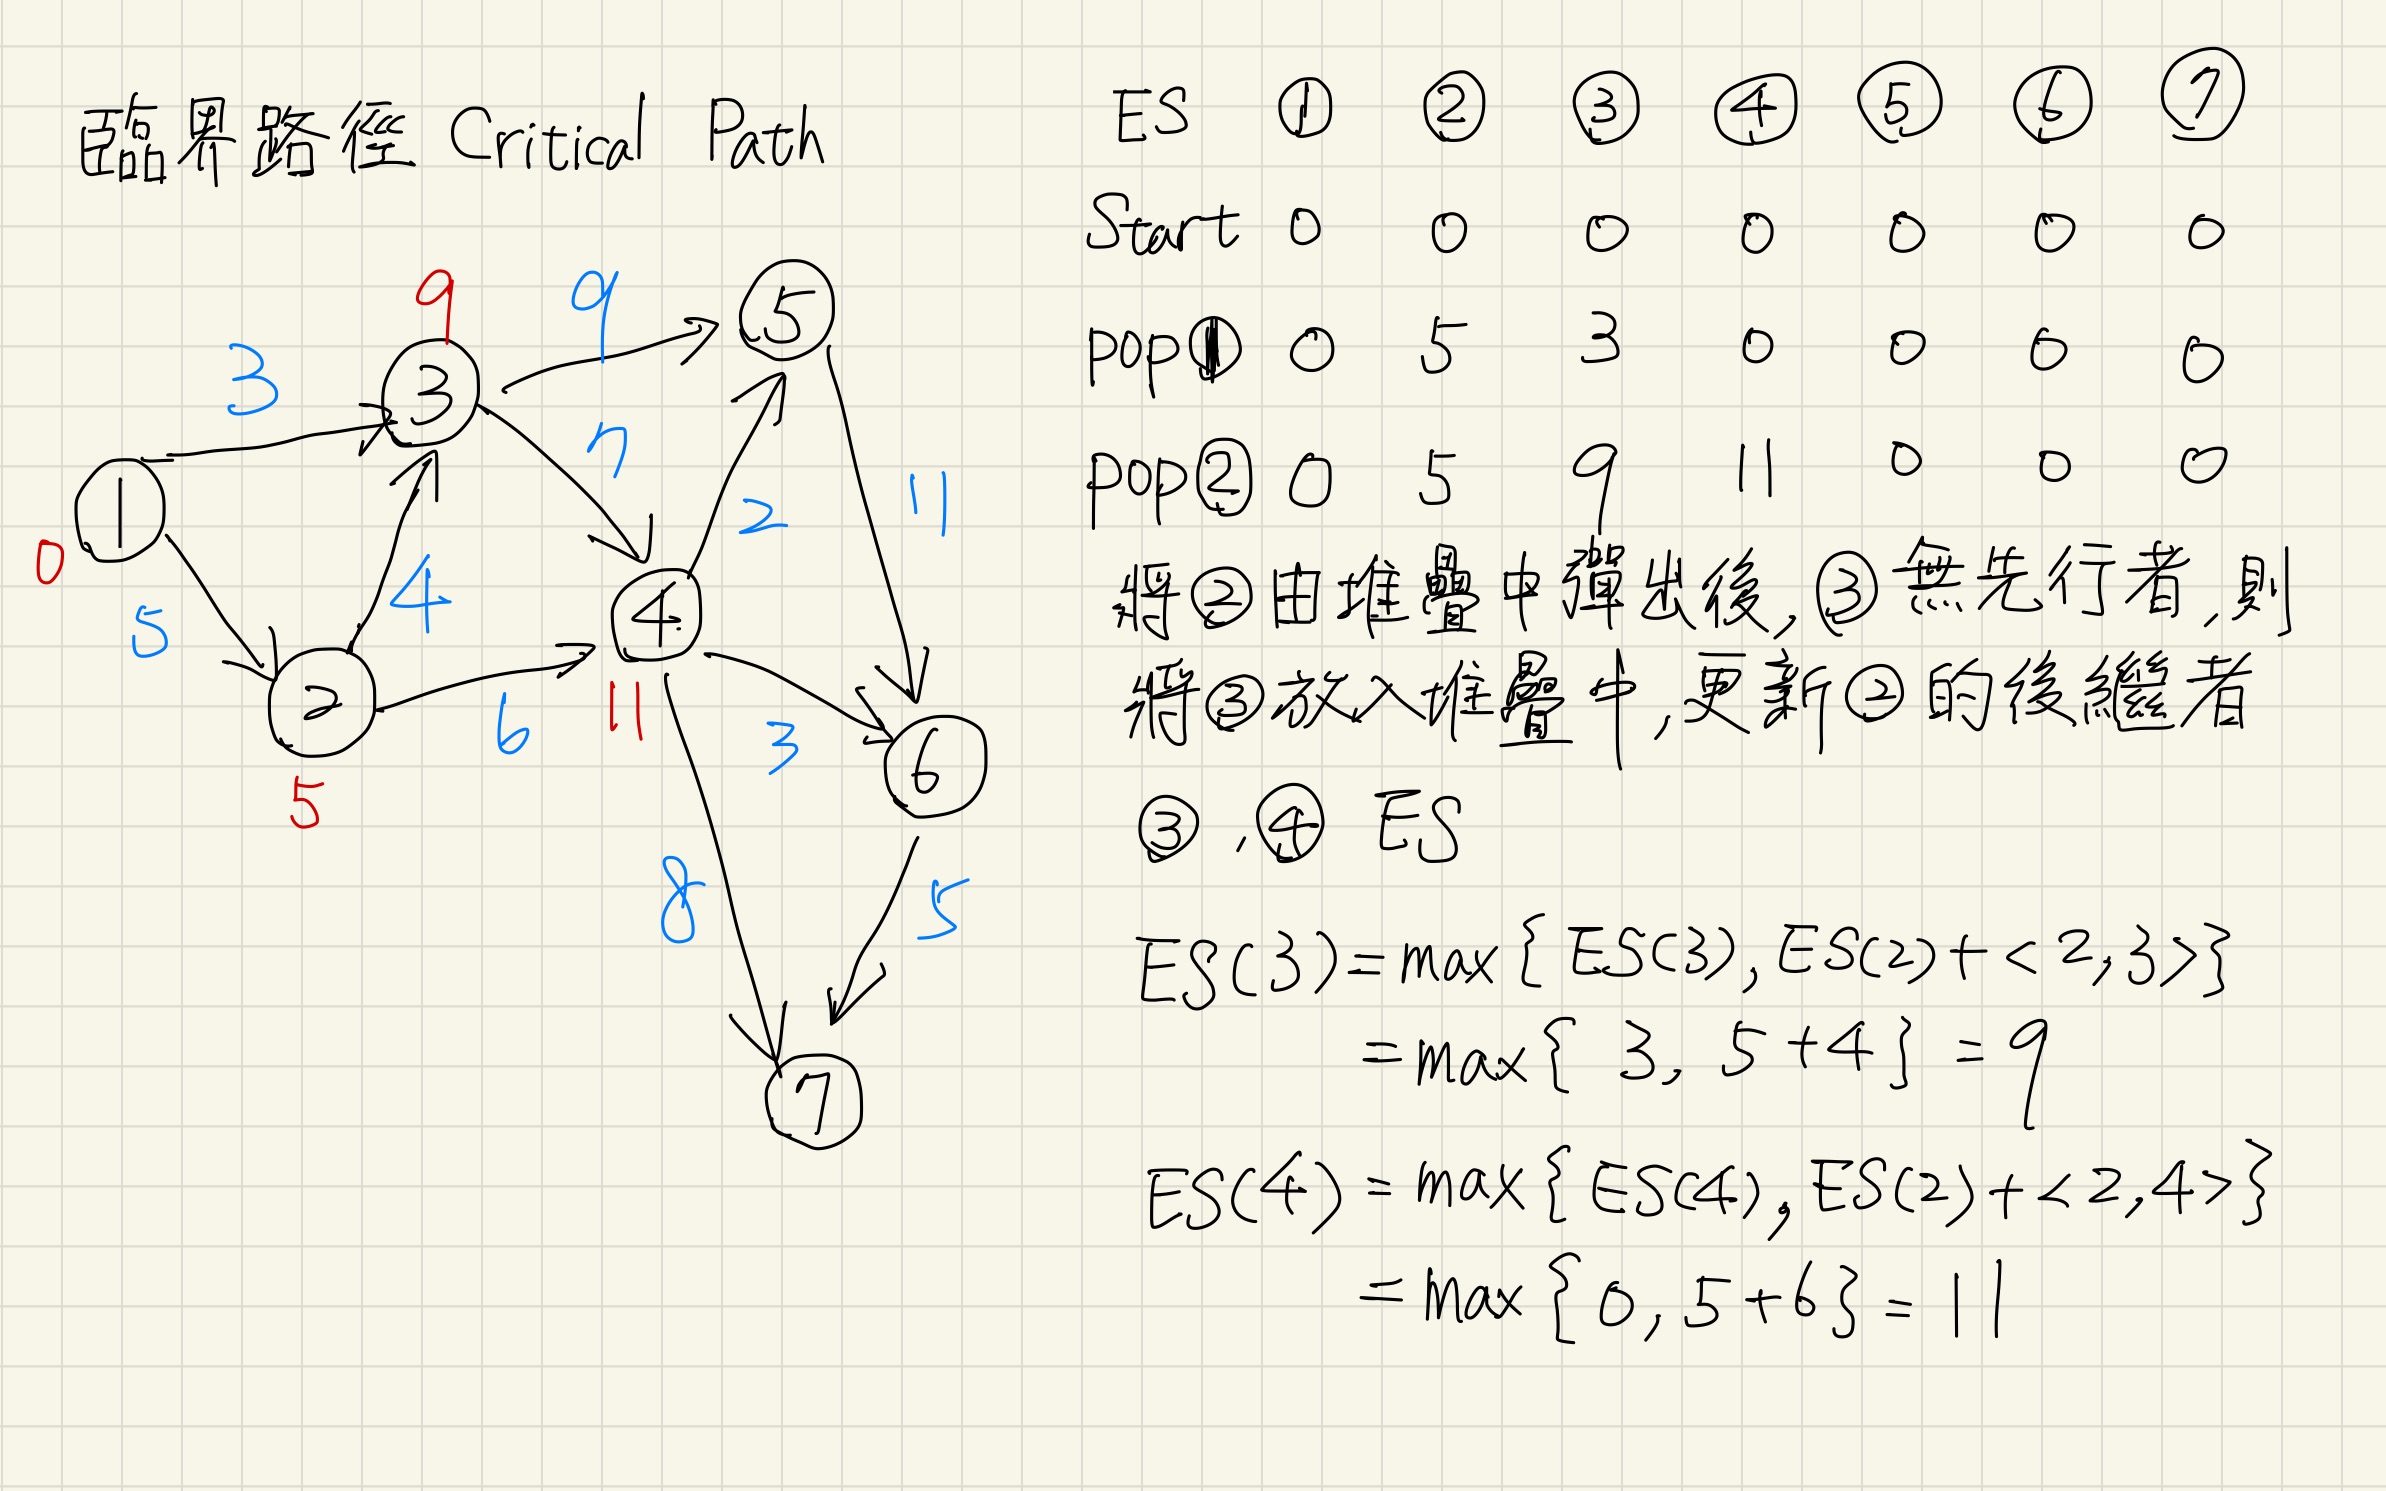 臨界路徑 Critical Path
9
9
⑤
3
③
7
①
2
11
0
4
5
④
②
6
11
3
⑥
5
8
5
⑦
ES ① ② ③ ④ ⑤ ⑥ ⑦
Start 0 0 0 0 0 0 0
pop① 0 5 3 0 0 0 0
pop② 0 5 9 11 0 0 0
將②由堆疊中彈出後,③無先行者,則
將③放入堆疊中,更新②的後繼者
③,④ ES
ES(3)=max{ ES(3), ES(2)+<2,3>}
=max{ 3, 5+4} = 9
ES(4) = max{ES(4), ES(2)+<2,4>}
= max{0, 5+6} = 11